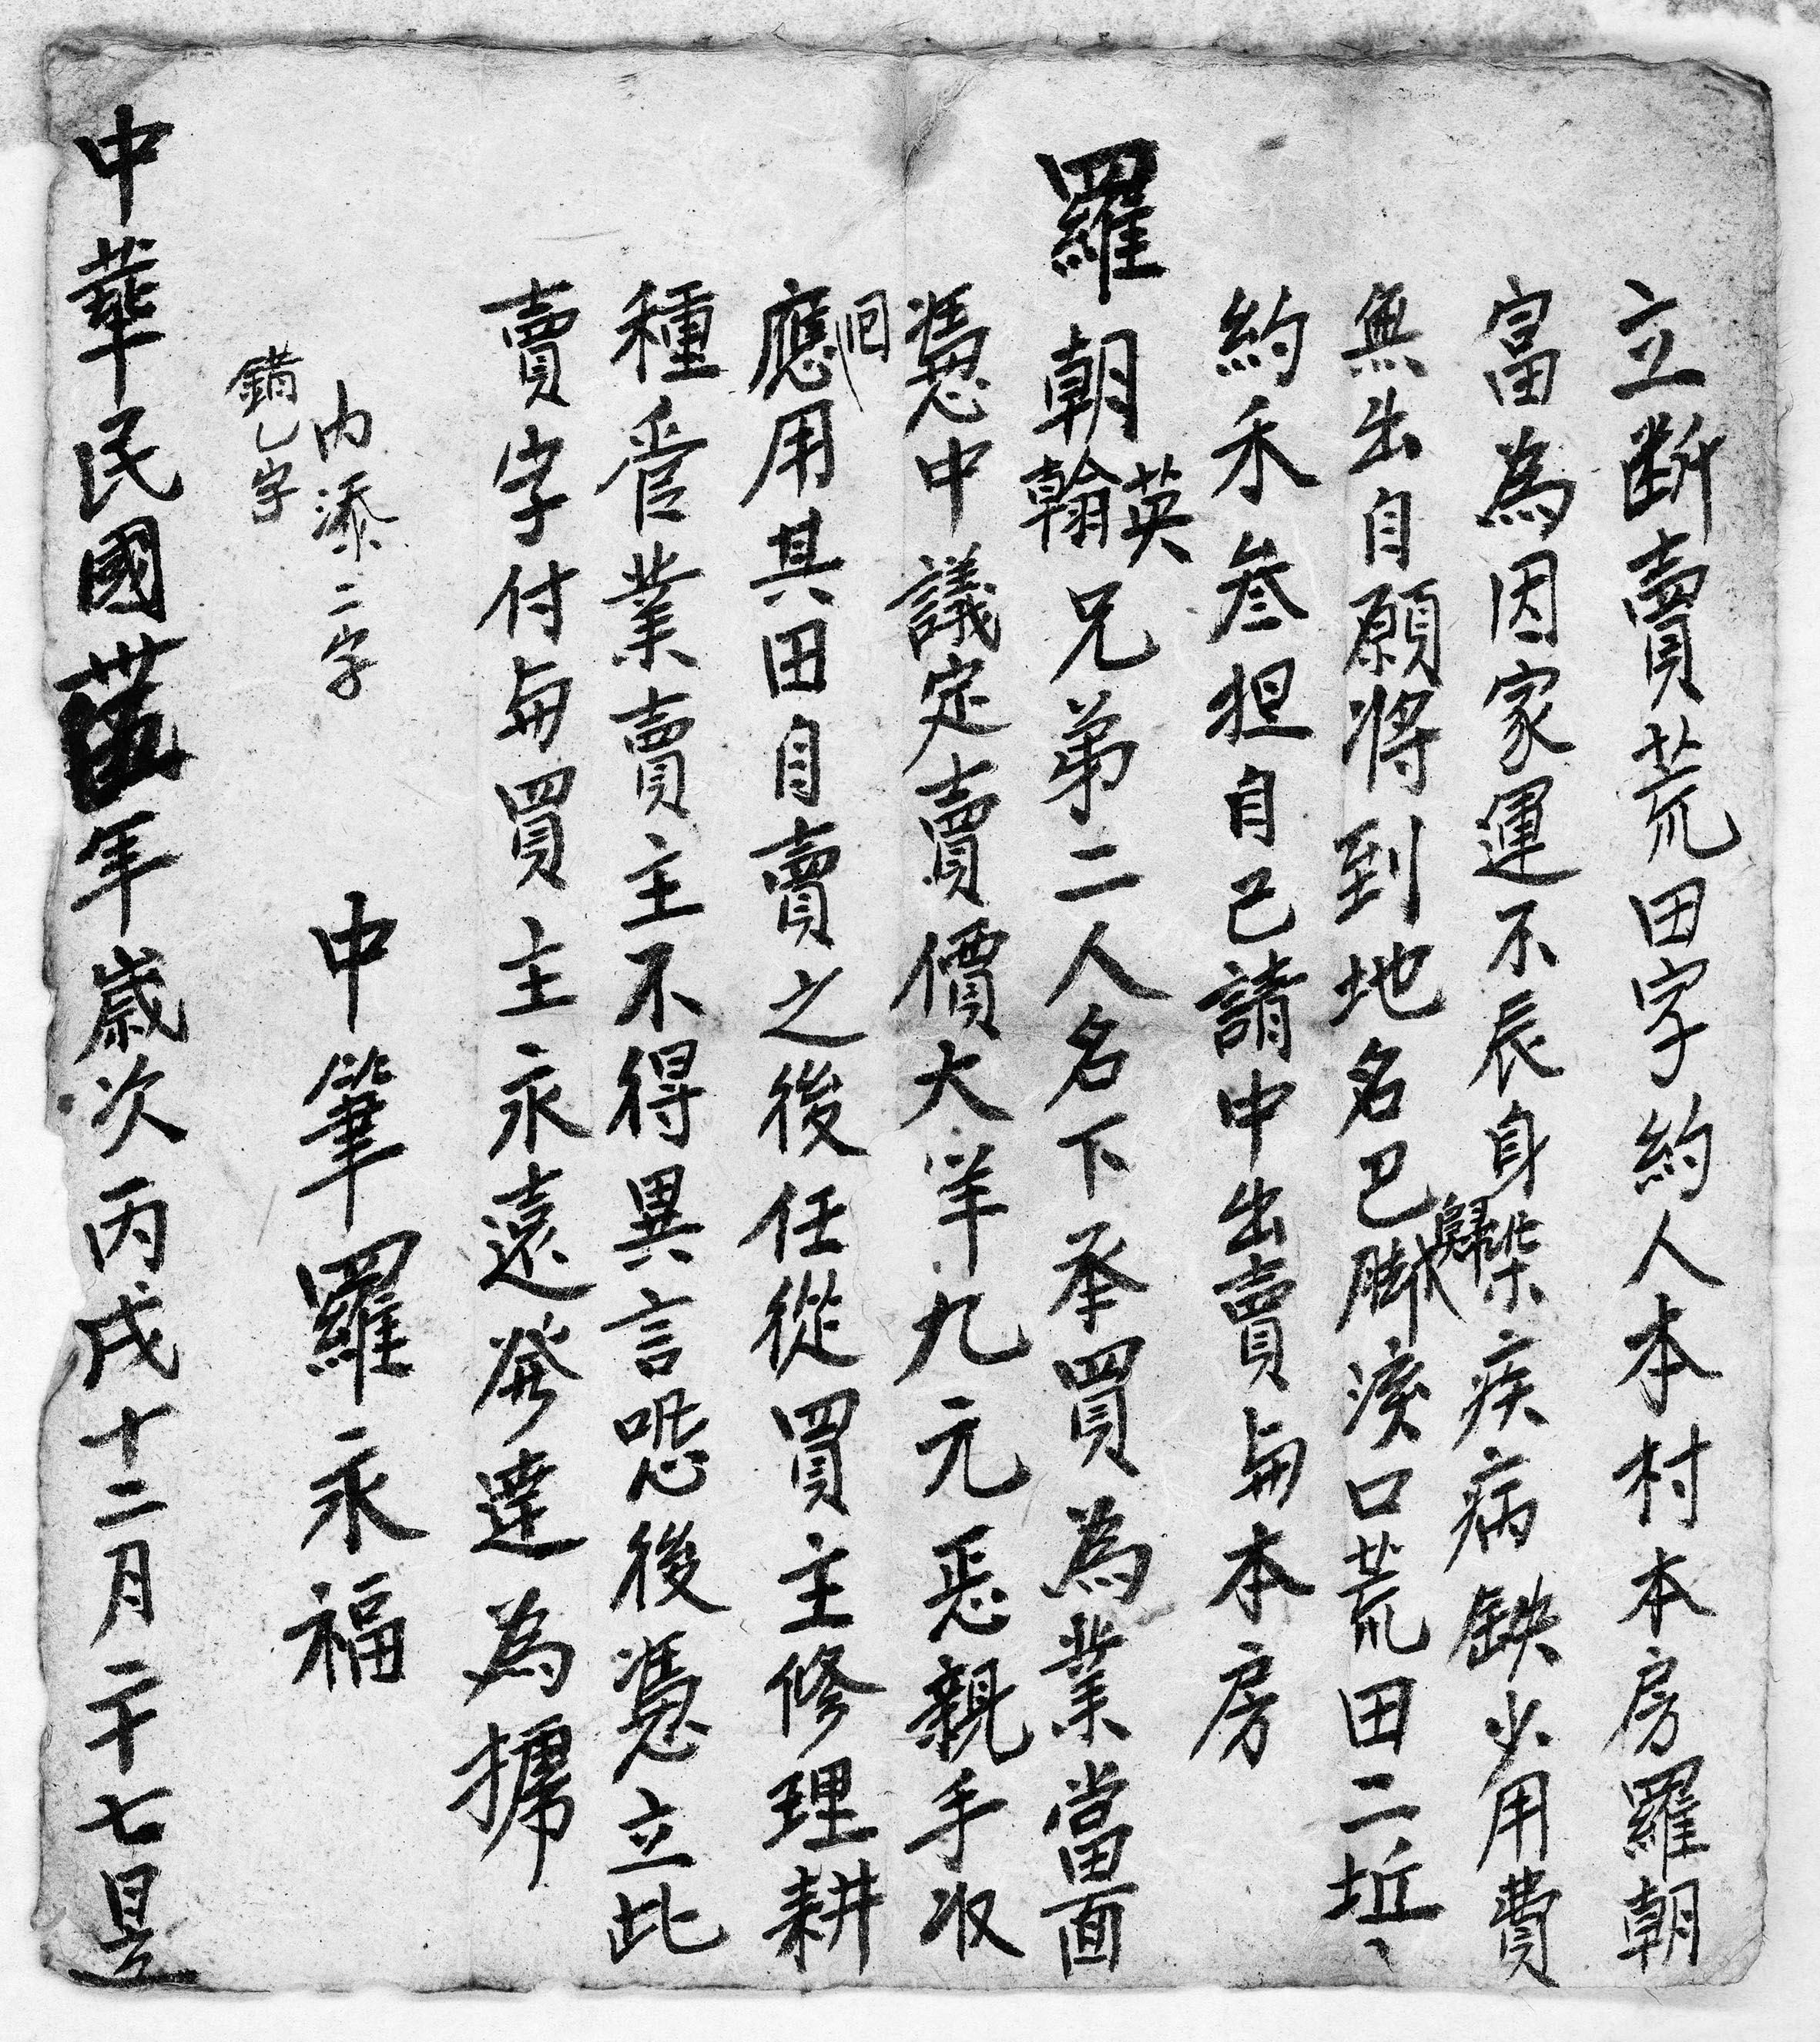 立断賣荒田字約人本村本房羅朝
富為因家運不辰身歸染疾病缺少用費
無出自願将到地名巴脚濙口荒田二坵、
約禾叄担自己請中出賣與本房
羅朝英翰兄弟二人名下承買為業當面
憑中議定賣價大洋九元惡親手收
回應用其田自賣之後任從買主修理耕
種管業賣主不得異言恐後憑立此
賣字付與買主永遠發達為據
内添二字
錯乙字
中筆羅永福
中華民國年歲次丙戌十二月二十七昱立